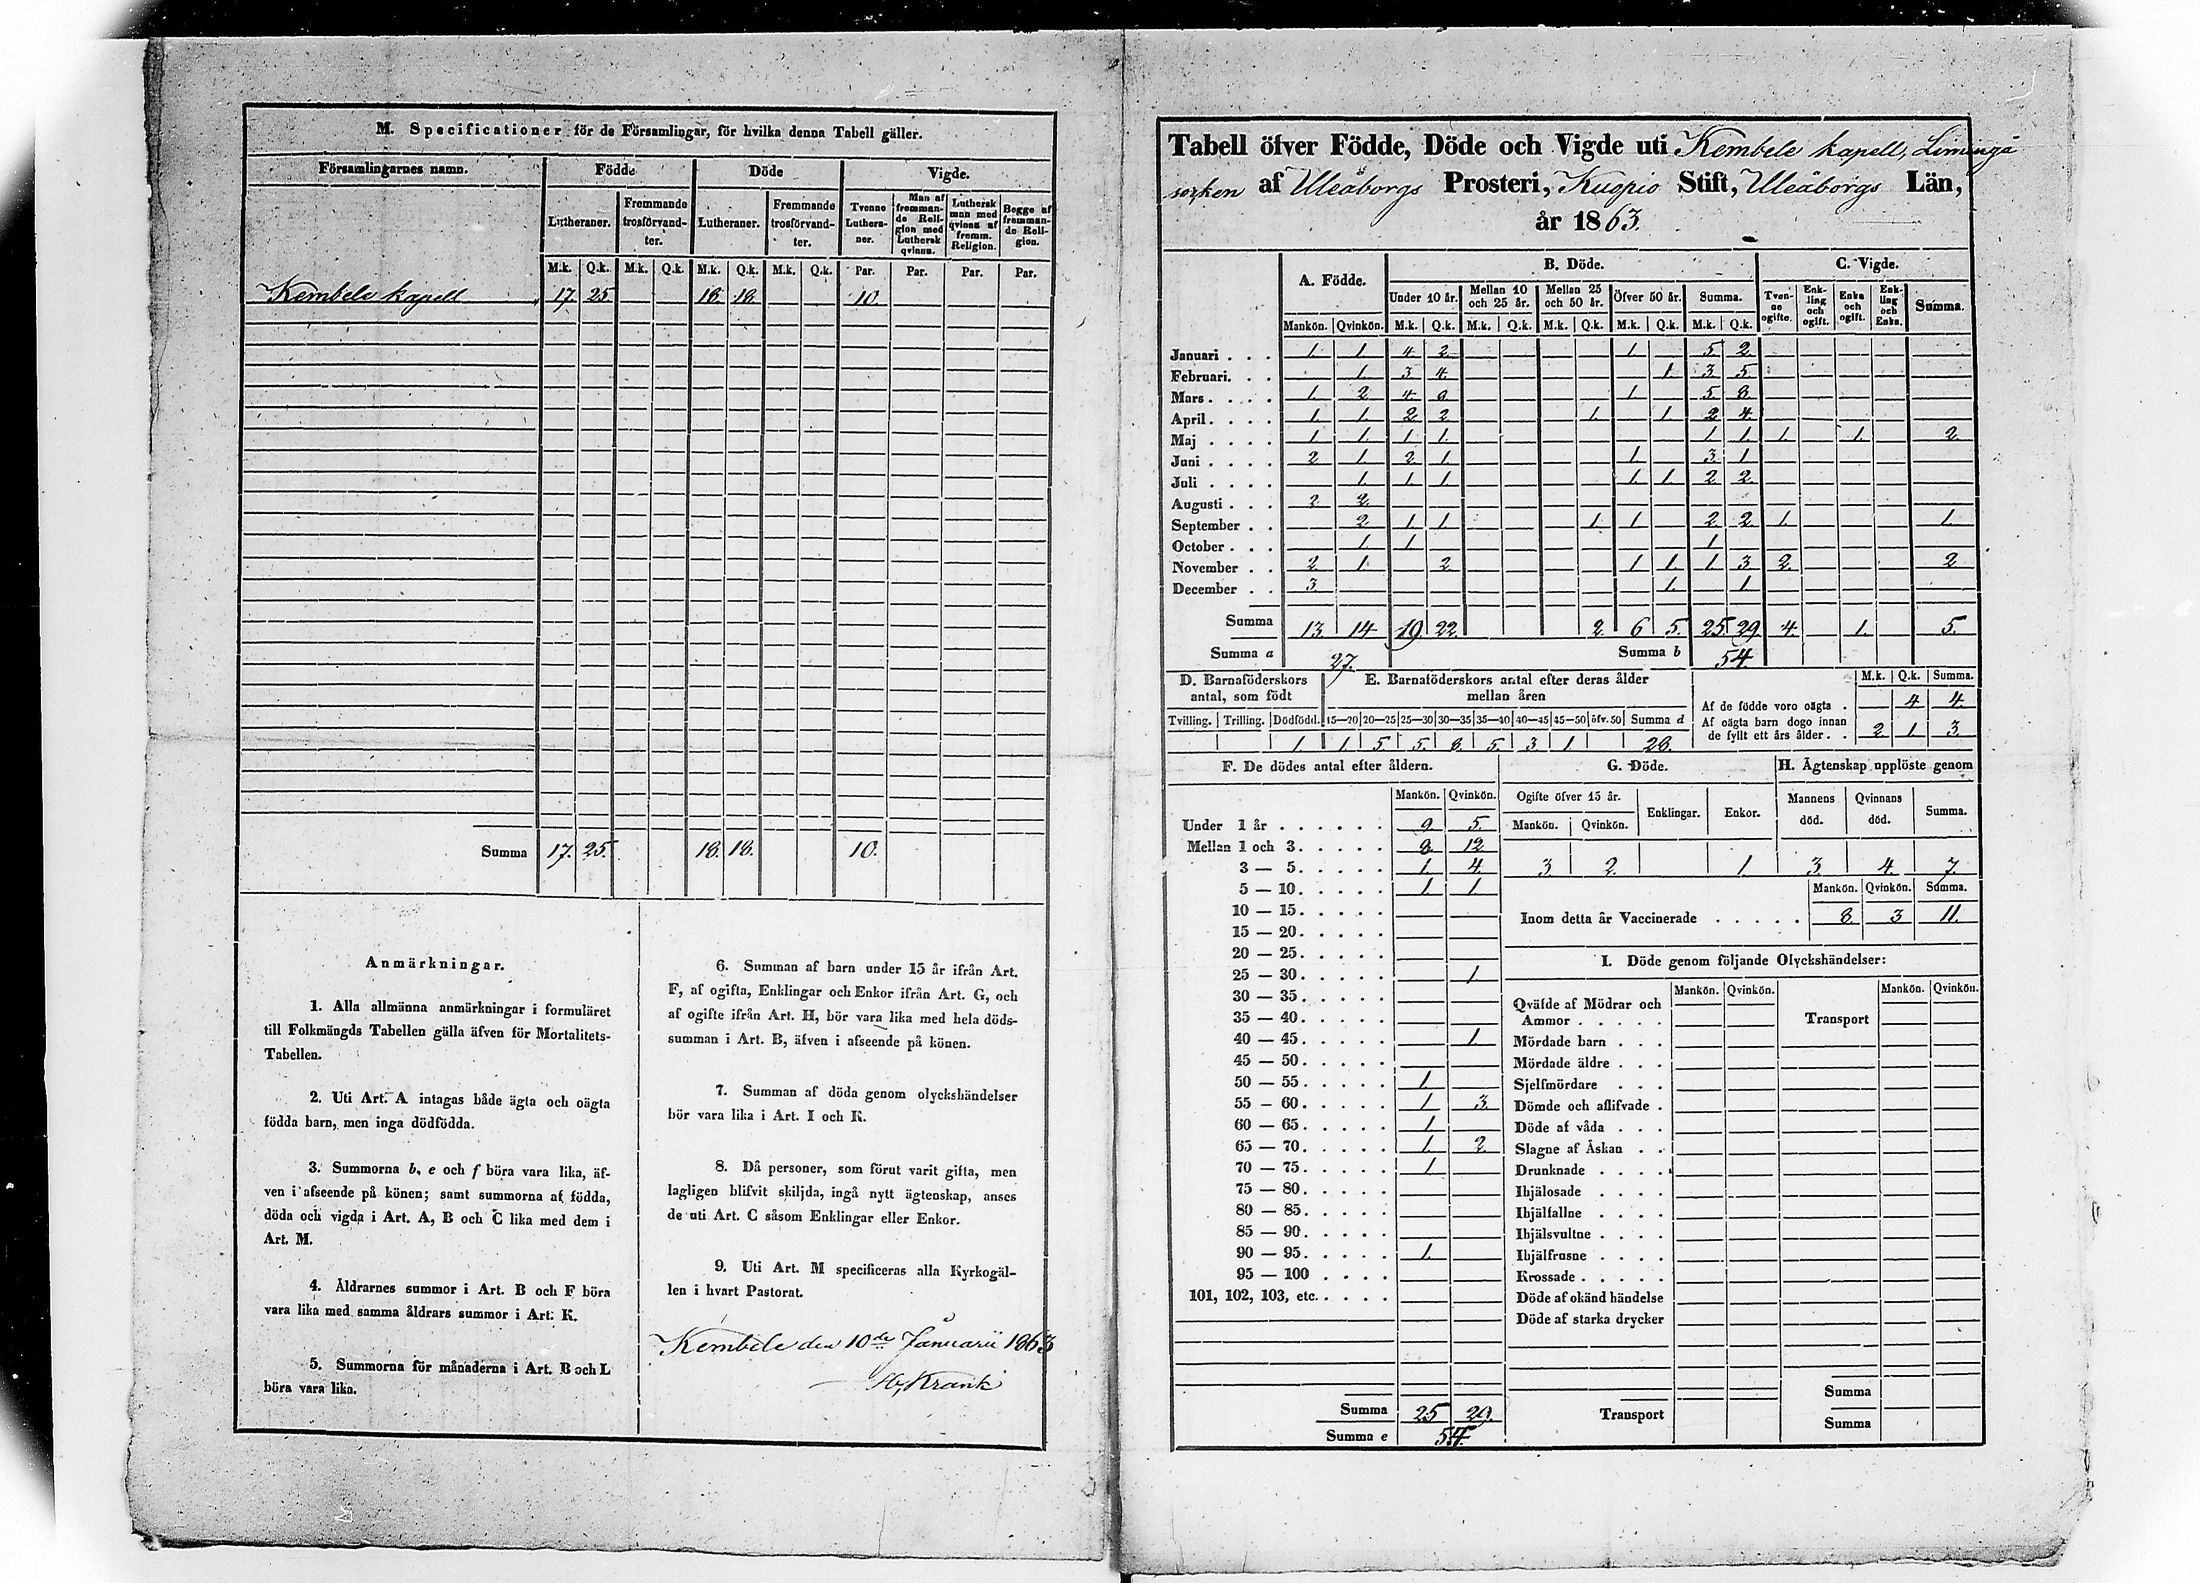 M. Specificationer för de Församlingar, för hvilka denna Tabell gäller.
Församlingarnes namn. Födde Döde Vigde.
Lutheraner. Fremmande trosförvandter. Lutheraner. Fremmande trosförvandter. Tvenne Lutheraner. Man af fremmande Religion med Luthersk qvinna. Luthersk man med qvinna af fremm. Religion. Begge af fremmande Religion.
M.k. Q.k. M.k. Q.k. M.k. Q.k. M.k. Q.k. Par. Par. Par. Par.
Kembele kapell 17. 25 18. 18. 10.
Summa 17. 25. 18. 18. 10.
Anmärkningar.
1. Alla allmänna anmärkningar i formuläret
till Folkmängds Tabellen gälla äfven för Mortalitets-
Tabellen.
2. Uti Art. A intagas både ägta och oägta
födda barn, men inga dödfödda.
3. Summorna b, e och f böra vara lika, äf-
ven i afseende på könen; samt summorna af födda,
döda och vigda i Art. A, B och C lika med dem i
Art. M.
4. Åldrarnes summor i Art. B och F böra
vara lika med samma åldrars summor i Art. K.
5. Summorna för månaderna i Art. B och L
böra vara lika.
6. Summan af barn under 15 år ifrån Art.
F, af ogifta, Enklingar och Enkor ifrån Art. G, och
af ogifte ifrån Art. H, bör vara lika med hela döds-
summan i Art. B, äfven i afseende på könen.
7. Summan af döda genom olyckshändelser
bör vara lika i Art. I och K.
8. Då personer, som förut varit gifta, men
lagligen blifvit skiljda, ingå nytt ägtenskap, anses
de uti Art. C såsom Enklingar eller Enkor.
9. Uti Art. M specificeras alla Kyrkogäl-
len i hvart Pastorat.
Kembele den 10de Januarii 1863
Krank
Tabell öfver Födde, Döde och Vigde uti Kembele kapell, Limingå
socken af Uleåborgs Prosteri, Kuopio Stift, Uleåborgs Län,
år 1863.
A. Födde. B. Döde. C. Vigde.
Under 10 år. Mellan 10 och 25 år. Mellan 25 och 50 år. Öfver 50 år. Summa. Tvenne ogifte. Enkling och ogift. Enka och ogift. Enkling och Enka. Summa.
Mankön. Qvinkön. M.k. Q.k. M.k. Q.k. M.k. Q.k. M.k. Q.k. M.k. Q.k.
Januari . . . 1. 1 4 2 1. 5 2
Februari. . . 1 3 4. 1. 3 5
Mars . . . . 1. 2 4 8 1. 5 8
April . . . . 1 1 2 2 1. 1. 2 4.
Maj . . . . 1 1. 1. 1. 1 1. 1. 1. 2.
Juni . . . . 2 1 2 1 1 3 1
Juli . . . . 1 1 1 1 1 2 2
Augusti . . . 2 2.
September . . 2 1. 1 1 1 2 2. 1. 1.
October . . . 1 1 1
November . . 2 1 2 1 1 1. 3 2. 2
December . . 3. 1. 1
Summa 13. 14 19 22. 2. 6 5. 25. 29 4. 1. 5.
Summa a 27. Summa b 54.
D. Barnaföderskors antal, som födt
E. Barnaföderskors antal efter deras ålder mellan åren
M.k. Q.k. Summa.
Tvilling. Trilling. Dödfödd. 15—20 20—25 25—30 30—35 35—40 40—45 45—50 öfv. 50 Summa d
1 1. 5 5. 8. 5. 3 1 28.
Af de födde voro oägta . 4 4.
Af oägta barn dogo innan
de fyllt ett års ålder . . 2 1. 3.
F. De dödes antal efter åldern.
Mankön. Qvinkön.
Under 1 år . . . . . . 9 5.
Mellan 1 och 3. . . . . 8. 12
3 — 5. . . . . 1. 4.
5 — 10. . . . . 1. 1.
10 — 15. . . . .
15 — 20. . . . .
20 — 25. . . . .
25 — 30 . . . . 1
30 — 35. . . . .
35 — 40. . . . .
40 — 45. . . . . 1.
45 — 50. . . . .
50 — 55. . . . . 1.
55 — 60. . . . . 1 3.
60 — 65. . . . . 1
65 — 70. . . . . 1. 2.
70 — 75. . . . . 1
75 — 80. . . . .
80 — 85. . . . .
85 — 90. . . . .
90 — 95. . . . . 1.
95 — 100 . . . .
101, 102, 103, etc. . . . .
Summa 25 29.
Summa e 54.
G. Döde.
Ogifte öfver 15 år. Enklingar. Enkor.
Mankön. Qvinkön.
3 2. 1.
H. Ägtenskap upplöste genom
Mannens död. Qvinnans död. Summa.
3. 4. 7.
Mankön. Qvinkön. Summa.
Inom detta år Vaccinerade . . . . . 8. 3 11.
I. Döde genom följande Olyckshändelser:
Mankön. Qvinkön. Mankön. Qvinkön.
Qväfde af Mödrar och
Ammor . . . . . Transport
Mördade barn . . .
Mördade äldre . . .
Sjelfmördare . . .
Dömde och aflifvade .
Döde af våda . . .
Slagne af Åskan . .
Drunknade . . . .
Ihjälosade . . . .
Ihjälfallne . . . .
Ihjälsvultne . . . .
Ihjälfrusne . . . .
Krossade . . . . .
Döde af okänd händelse
Döde af starka drycker
Summa
Transport Summa